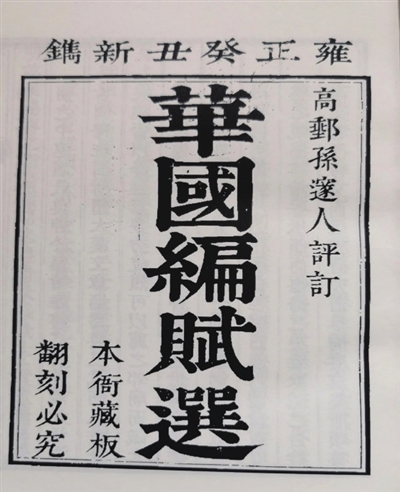 雍正癸丑新鐫
高郵孫邃人評訂
華國編賦選
本衙藏板
翻刻必究